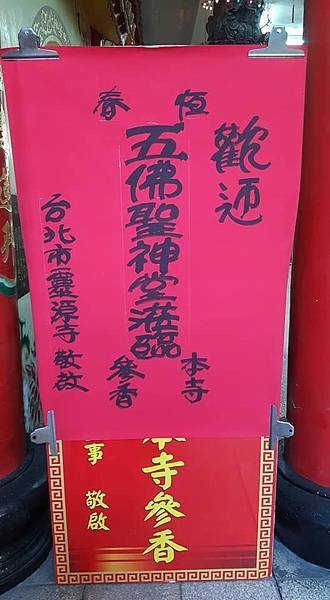 歡迎
恆春
五佛聖神堂蒞臨
本寺
參香
台北市靈源寺敬啟
本寺參香
事 敬啟